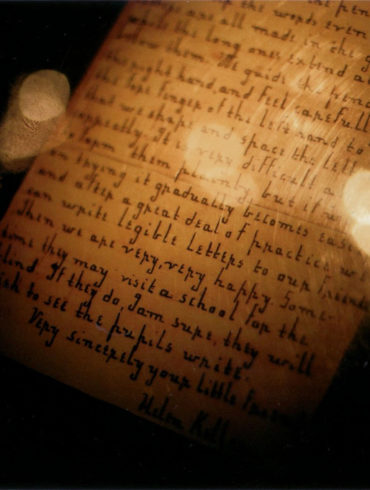 the words even
are all made in the g
the long ones extend a
them. We guide the penc
the right hand, and feel carefull
the fore finger of the left hand to
that we shape and space the lett
It is very difficult a
form them plainly, but if we
on trying it gradually becomes easi
and after a great deal of practice we
can write legible letters to our friends
Then we are very, very happy. Some
time they may visit a school for the
blind. If they do, I am sure, they will
wish to see the pupils write.
Very sincerely your little friend
Helen Kell